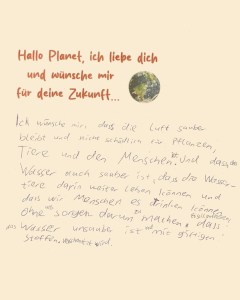 Hallo Planet, ich liebe dich
und wünsche mir
für deine Zukunft...
Ich wünsche mir, daß die Luft sauber
bleibt und nicht schädlich für Pflanzen,
Tiere und den Menschen ist. Und dass das
Wasser auch sauber ist, das die Wasser-
tiere darin weiter Leben können und
das wir Menschen es trinken können
ohne sorgen darum machen, dass
das Wasser unsaube ist mit giftigen
stoffen wird.